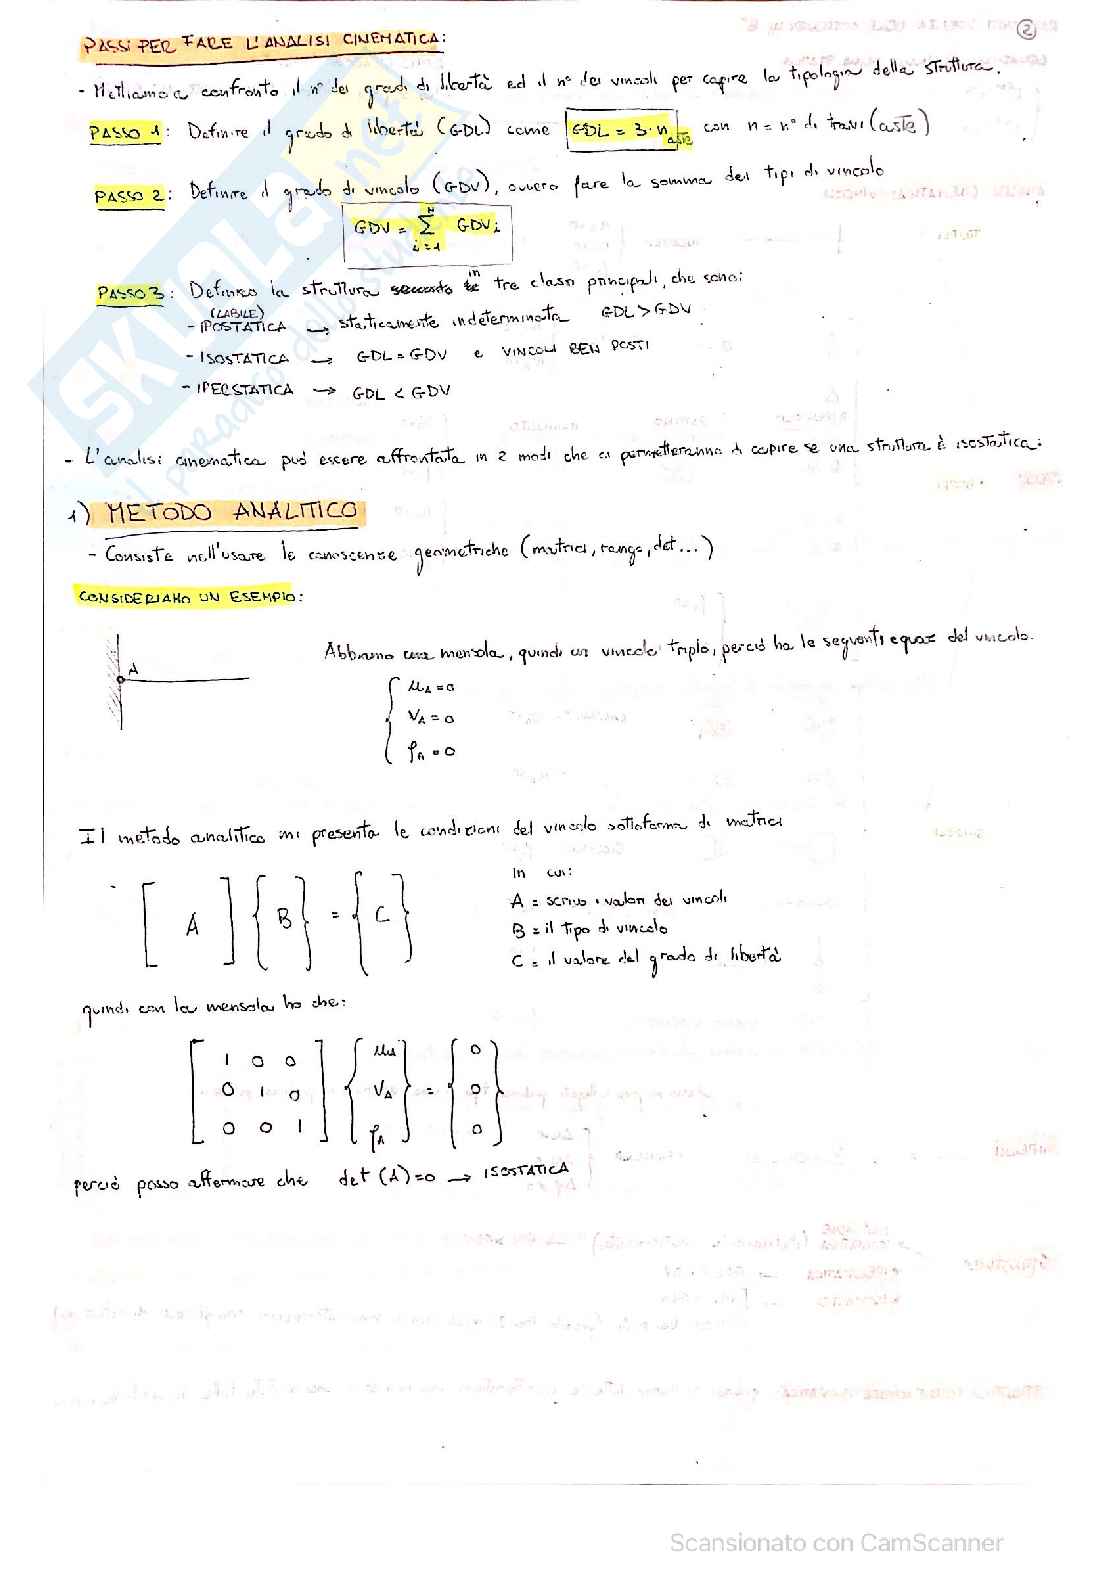 2
PASSI PER FARE L'ANALISI CINEMATICA:
- Mettiamo a confronto il n° dei gradi di libertà ed il n° dei vincoli per capire la tipologia della struttura.
PASSO 1: Definire il grado di libertà (GDL) come GDL = 3·n aste con n = n° di travi (aste)
PASSO 2: Definire il grado di vincolo (GDV), ovvero fare la somma dei tipi di vincolo
GDV = Σ GDVi
N
i=1
PASSO 3: Definisco la struttura secondo in tre classi principali, che sono:
(LABILE)
- IPOSTATICA → staticamente indeterminata GDL > GDV
- ISOSTATICA → GDL = GDV e VINCOLI BEN POSTI
- IPERSTATICA → GDL < GDV
- L'analisi cinematica può essere affrontata in 2 modi che ci permetteranno di capire se una struttura è isostatica:
1) METODO ANALITICO
- Consiste nell'usare le conoscenze geometriche (matrici, rango, det...)
CONSIDERIAMO UN ESEMPIO:
A
Abbiamo una mensola, quindi un vincolo triplo, perciò ha le seguenti equaz del vincolo.
{ uA = 0
VA = 0
φA = 0
Il metodo analitico mi presenta le condizioni del vincolo sottoforma di matrici
[ A ] { B } = { C }
In cui:
A = scrivo i valori dei vincoli
B = il tipo di vincolo
C = il valore del grado di libertà
quindi con la mensola ho che:
[ 1 0 0 ] { uA } = { 0 }
0 1 0 VA 0
0 0 1 φA 0
perciò posso affermare che det (A) = 0 → ISOSTATICA
SKUOLA.net
il paradiso dello studente
Scansionato con CamScanner